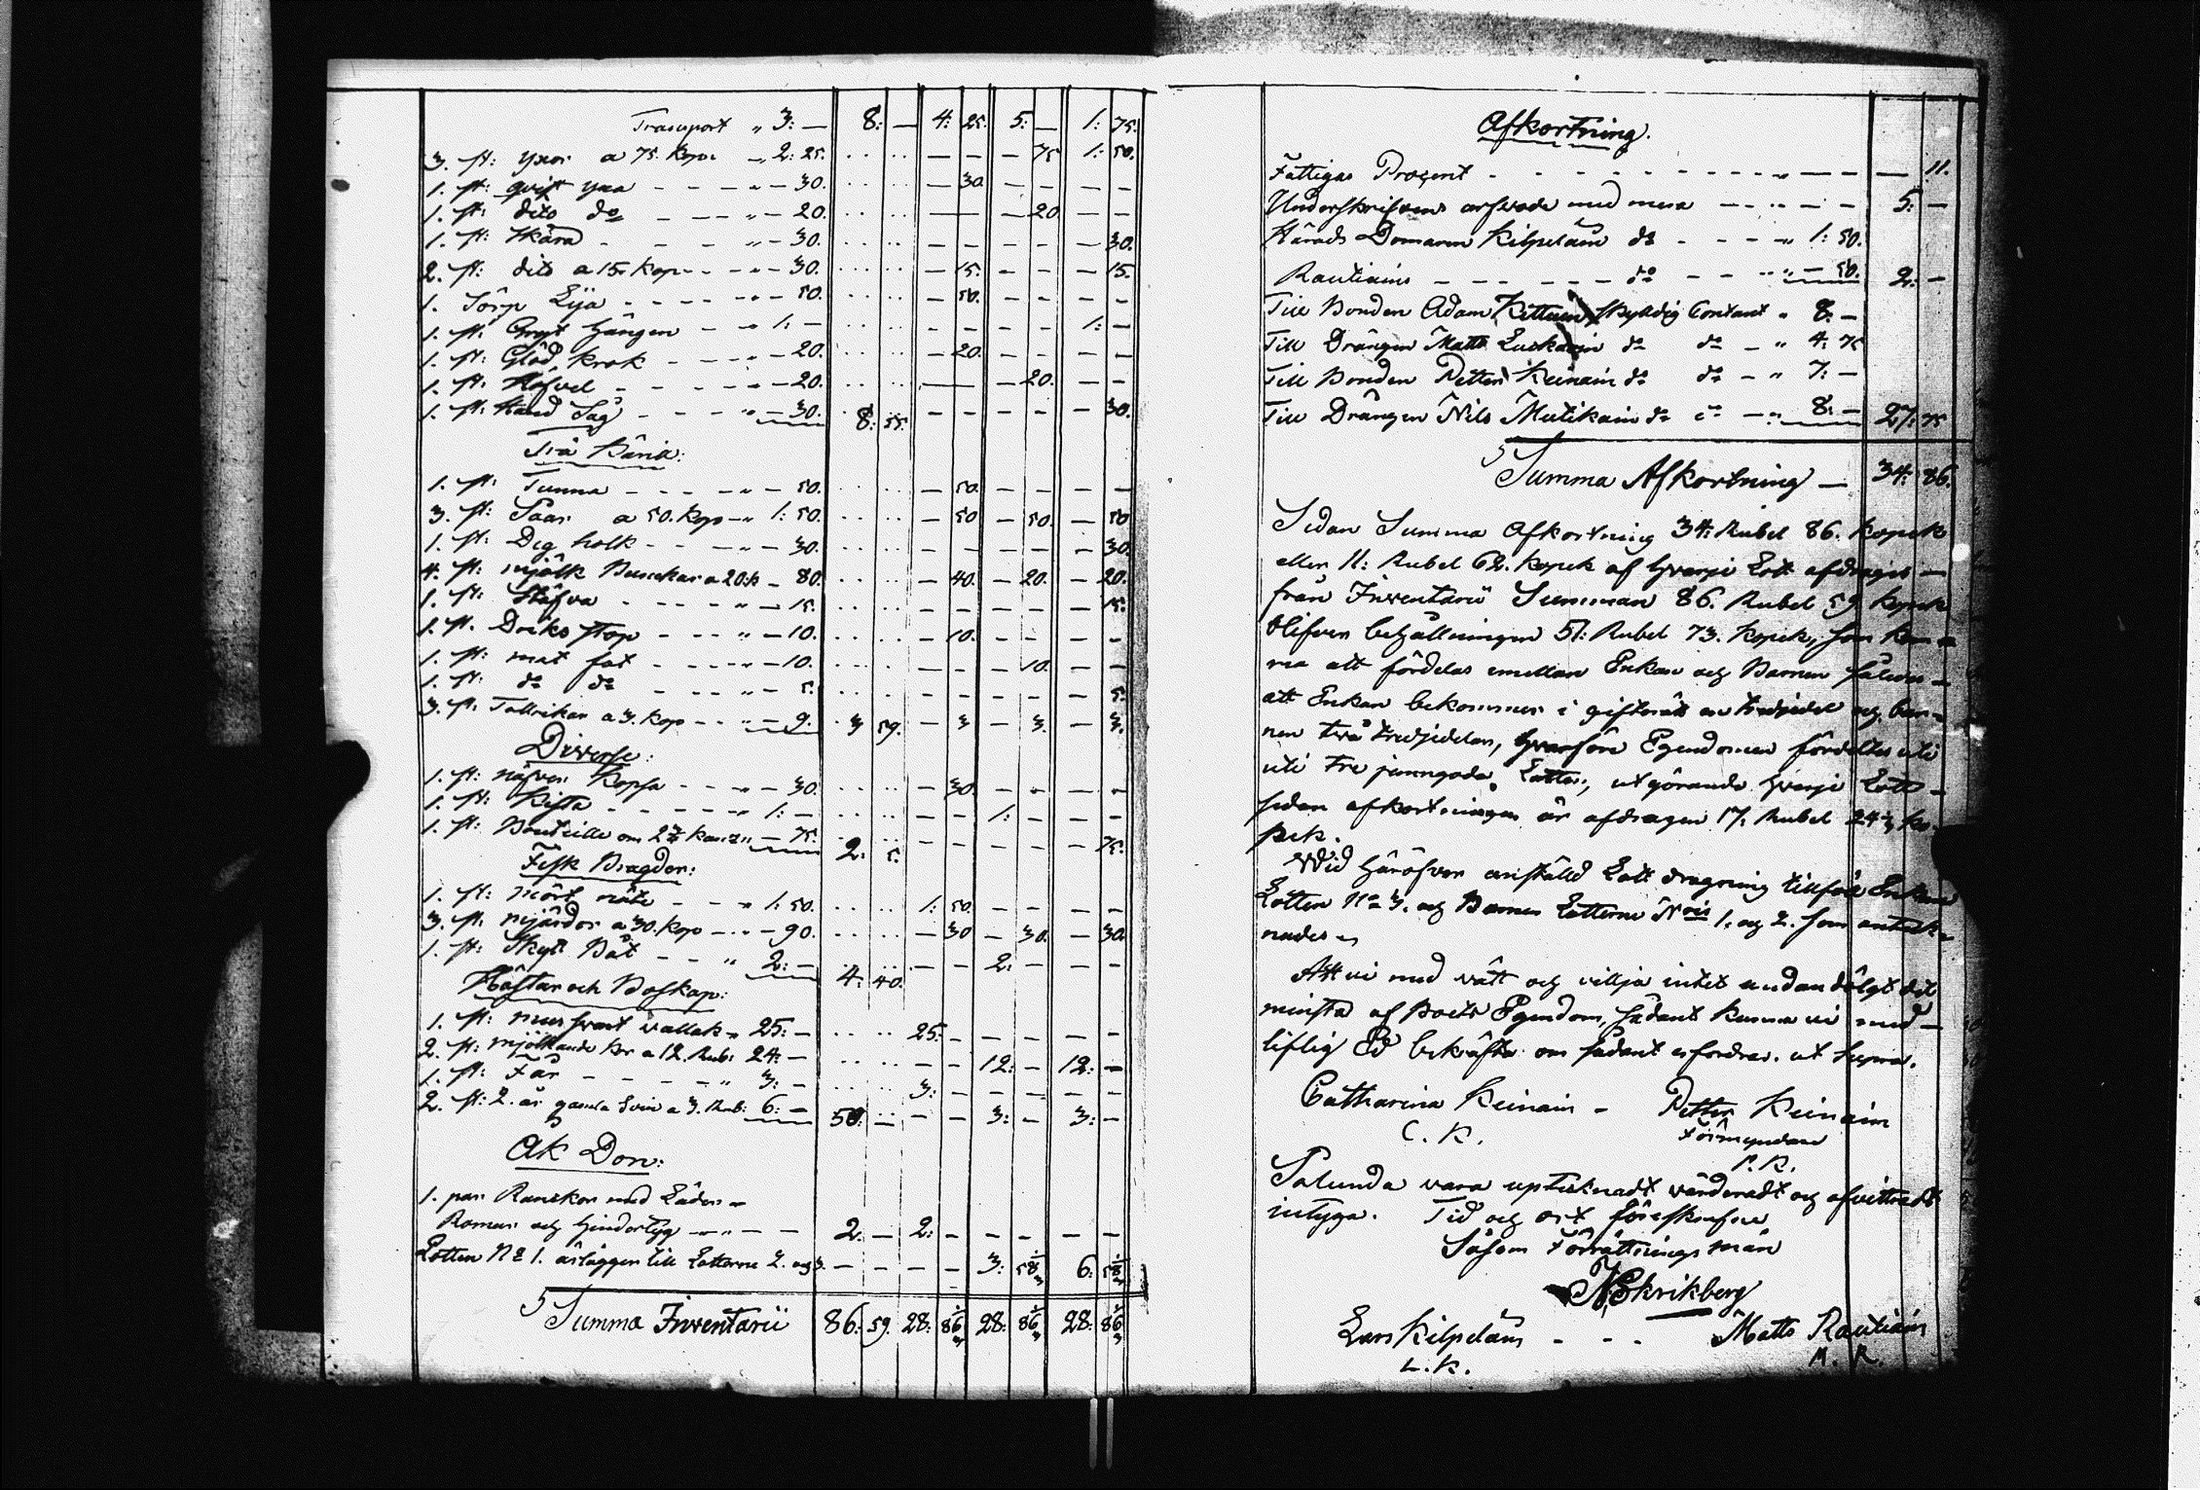 Transport " 3: — 8: — 4: 25. 5: — 1: 75.
3. st: yxor a 75. kop: — 2: 25. — — — 75 1: 50.
1. st: qvist yxa — 30. — 30. — — — —
1. st: dito do — 20. — — — 20. — —
1. st: skära — 30. — — — — — 30.
2. st: dito a 15. kop — 30. — 15. — — — 15.
1. Sörp Lija — 50. — 50. — — — —
1. st. Gryt Hängen — 1: — — — — — 1: —
1. st: Glöd krok — 20. — 20. — — — —
1. st. Höfvel — 20. — — — 20. — —
1. st. Hand Såg — 30. 8: 55. — — — — — 30.
Trä Käril:
1. st. Tunna — 50. — 50. — — — —
3. st: Såar a 50. kop — 1: 50. — 50 — 50. — 50
1. st: Degholk — 30. — — — — — 30.
4. st: mjölk Bunckar a 20. k — 80. — 40. — 20. — 20.
1. st: Stäfva — 15. — — — — — 15.
1. st. Dricks stop — 10. — 10. — — — —
1. st: mat fat — 10. — — — 10. — —
1. st: do do — 5. — — — — — 5.
3. st. Tallrikar a 3. kop — 9. 3 59. — 3 — 3. — 3.
Diverse:
1. st: näfver Kopsa — 30. — 30. — — — —
1. st: Kista — 1: — — — 1: — — —
1. st: Bouteille om 2½ kan: — 75. 2: 5. — — — — — 75.
Fisk Bragder:
1. st: mört nät — 1: 50. 1: 50. — — — —
3. st. mjärdor a 30. kop — 90. — 30 — 30. — 30.
1. st: Skytt Båt — 2: — 4: 40. — — 2: — — —
Hästar och Boskap:
1. st: svart vallak — 25: — 25: — — — — —
2. st: mjölkande kor a 12. Rub: 24: — — — 12: — 12: —
1. st: Får — 3: — 3: — — — — —
2. st: 2. år gamla Svin a 3. Rub: 6: — 58: — — — 3: — 3: —
Åk Don:
1. par Ranckor med Läder
Remar och Hindertyg — 2. — 2: — — — — —
Lotten No 1. årlägger till Lotterne 2. och 3. — — — — 3: 58⅓ 6: 58⅓
Summa Inventarii 86: 59. 28: 86⅓ 28: 86⅓ 28: 86⅓
Afkortning.
Fattigas Procent — — 11.
Underskrifvens arfvode med mera — 5: —
Härads Domaren Kilpeläin do — 1: 50.
Rautiains — do — 50. 2: —
Till Bonden Adam Kettuin skyldig Contant " 8: —
Till Drängen Matts Luskain do do — " 4: 75
Till Bonden Petter Keinain do do — " 7: —
Till Drängen Nils Mutikain do do — 8: — 27: 75
Summa Afkortning — 34: 86.
Sedan Summa Afkortning 34: Rubel 86. kopek
eller 11: Rubel 62. kopek af hvarje Lott afdragits —
från Inventarii Summan 86. Rubel 59 kopek
blifver behållningen 51: Rubel 73. kopek, som kom-
ma att fördelas emellan Enkan och Barnen således —
att Enkan bekommer i giftorätt en tredjedel och bar-
nen två tredjedelar, hvarföre Egendomen fördeltes uti
uti tre jemngoda Lotter, utgörande hvarje Lott —
sedan afkortningen är afdragen 17. Rubel 24⅓ ko-
pek.
Wid häröfver anställd Lott dragning tillföll Enkan
Lotten No 3. och Barnen Lotterne Nris 1. och 2. som anteck-
nades
Att vi med vätt och vilja intet undandölgt det
minsta af Boets Egendom, sådant kunna vi med —
liflig Ed bekräfta om sådant erfordras. ut supra.
Catharina Keinain — Petter Keinain
C. K. Förmyndare
P. K.
Sålunda vara upteknadt värderadt och afvittradt
intyga. Tid och ort föreskrefne
Såsom Förrättnings män
Skrikberg
Lars Kilpeläin — — — Matts Rautiain
L. K. M. R.